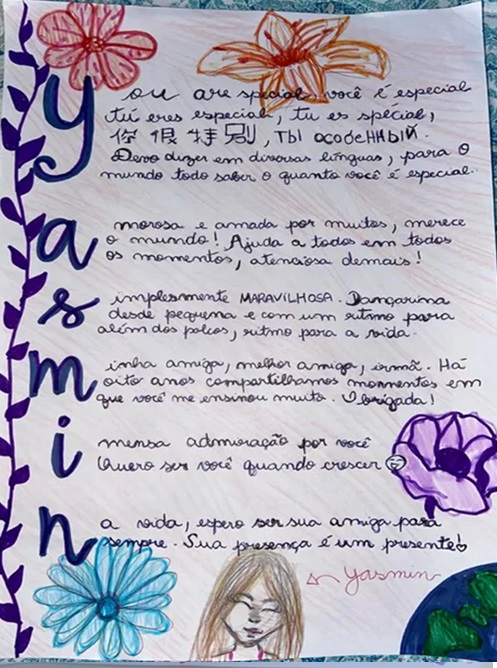 You are special, você é especial
tú eres especial, tu es spécial,
你很特别, ты особенный.
Devo dizer em diversas línguas, para o
mundo todo saber o quanto você é especial.
amorosa e amada por muitos, merece
o mundo! Ajuda a todos em todos
os momentos, atenciosa demais!
simplesmente MARAVILHOSA. Dançarina
desde pequena e com um ritmo para
além dos palcos, ritmo para a vida.
minha amiga, melhor amiga, irmã. Há
oito anos compartilhamos momentos em
que você me ensinou muito. Obrigada!
imensa admiração por você
Quero ser você quando crescer
na vida, espero ser sua amiga para
sempre. Sua presença é um presente!
Yasmin